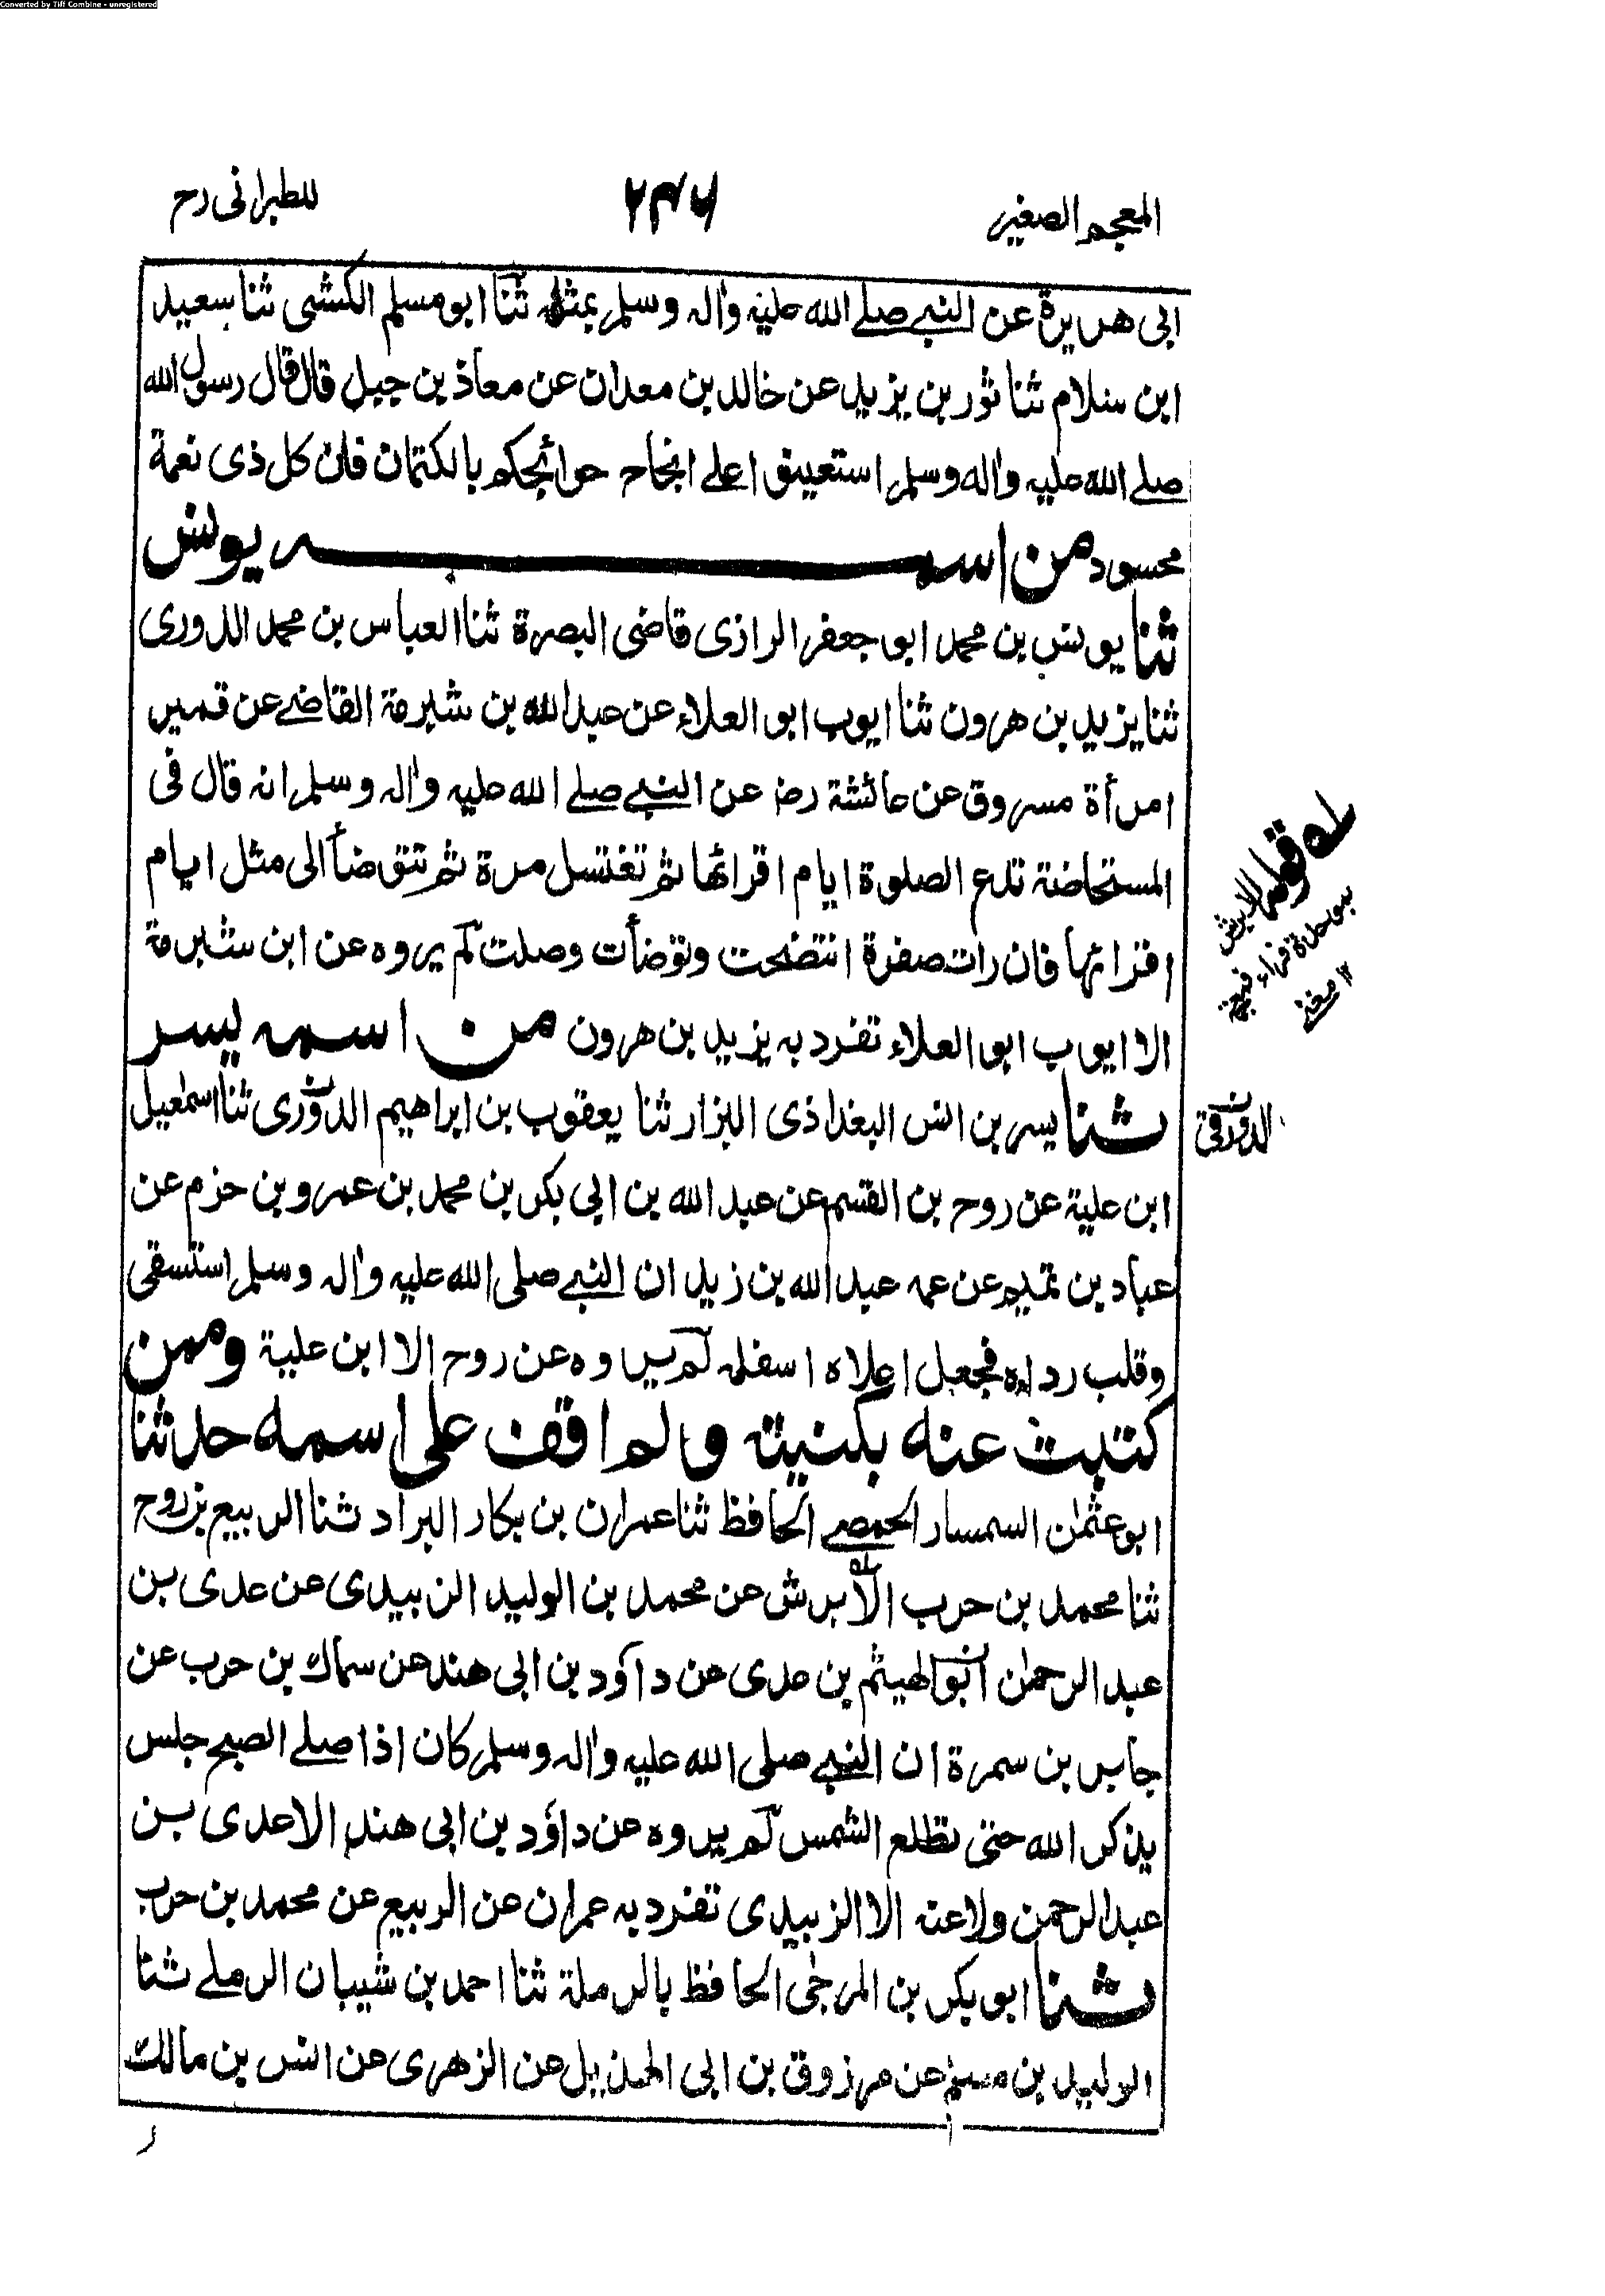 Converted by Tiff Combine - unregistered
المعجم الصغير ۲۴۶ للطبرانی رح
ابی هریرة عن النبے صلے الله علیه واله وسلم بمثله ثنا ابو مسلم الکشی ثنا سعید
ابن سلام ثنا ثور بن یزید عن خالد بن معدان عن معاذ بن جبل قال قال رسول الله
صلے الله علیه واله وسلم استعینوا علے انجاح حوائجکم بالکتمان فان کل ذی نعمة
محسود من اسمه یونس
ثنا یونس بن محمد ابو جعفر الرازی قاضی البصرة ثنا العباس بن محمد الدوری
ثنا یزید بن هرون ثنا ایوب ابو العلاء عن عبد الله بن شبرمة القاضے عن قمیر
امرأة مسروق عن عائشة رض عن النبے صلے الله علیه واله وسلم انه قال فی
المستحاضة تدع الصلوة ایام اقرائها ثم تغتسل مرة ثم تتوضأ الی مثل ایام
اقرائها فان رات صفرة انتضحت وتوضأت وصلت لم یروه عن ابن شبرمة
الا ایوب ابو العلاء تفرد به یزید بن هرون من اسمه یسر
ثنا یسر بن انس البغداذی البزار ثنا یعقوب بن ابراهیم الدوری ثنا اسمعیل
ابن علیة عن روح بن القسم عن عبد الله بن ابی بکر بن محمد بن عمرو بن حزم عن
عباد بن تمیم عن عمه عبد الله بن زید ان النبے صلی الله علیه واله وسلم استسقی
وقلب رداءه فجعل اعلاه اسفله لم یروه عن روح الا ابن علیة ومن
کتبت عنه بکنیته ولم اقف علی اسمه حدثنا
ابو عثمن السمسار الحمصے الحافظ ثنا عمران بن بکار البراد ثنا الربیع بن روح
ثنا محمد بن حرب الابرش عن محمد بن الولید الزبیدی عن عدی بن
عبد الرحمن ابو الهیثم بن عدی عن داود بن ابی هند عن سماك بن حرب عن
جابر بن سمرة ان النبے صلی الله علیه واله وسلم کان اذا صلے الصبح جلس
یذکر الله حتی تطلع الشمس لم یروه عن داود بن ابی هند الا عدی بن
عبد الرحمن ولا عنه الا الزبیدی تفرد به عمران عن الربیع عن محمد بن حرب
ثنا ابو بکر بن المرجی الحافظ بالرملة ثنا احمد بن شیبان الرملے ثنا
الولید بن مسلم عن مرزوق بن ابی الهذیل عن الزهری عن انس بن مالك
له قوله الابرش
۱۲ مغنے
الدورقی